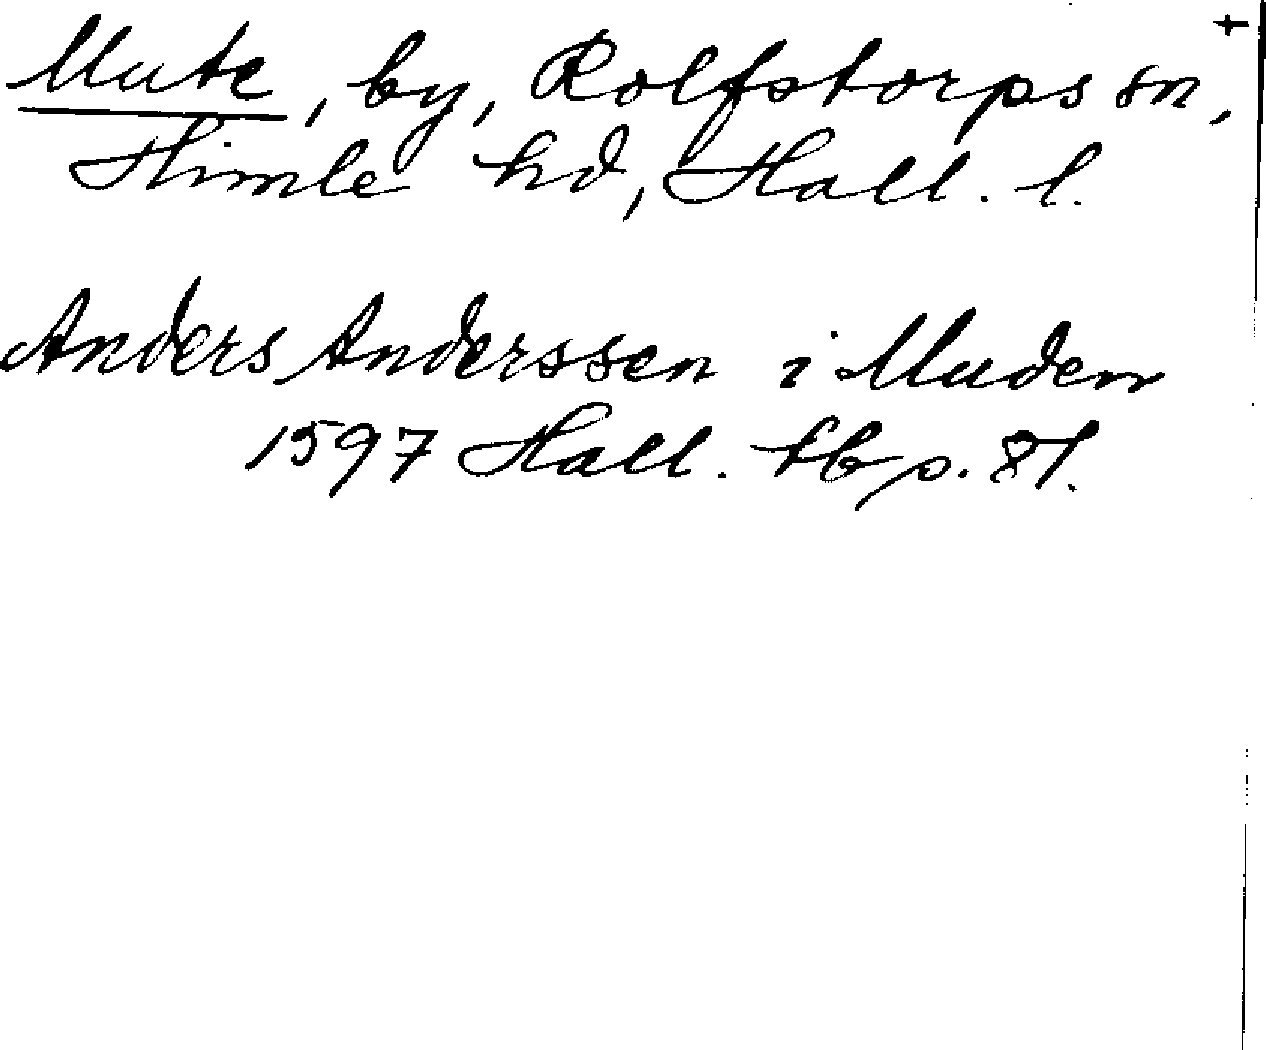 Mute, by, Rolfstorps sn,
Himle hd, Hall. l.
Anders Anderssen i Muden
1597 Hall. tb p. 81.